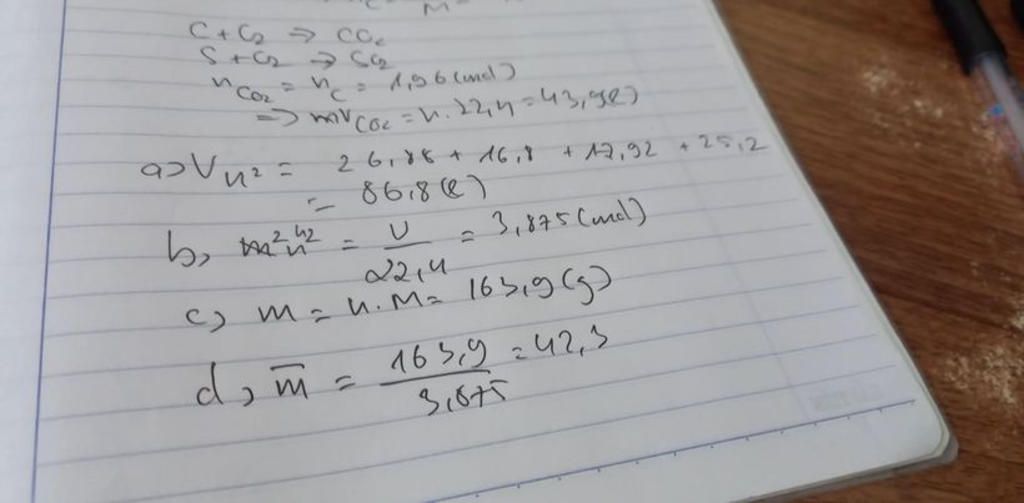 C + O2 => CO2
S + O2 => SO2
n CO2 = n C = 1,96 (mol)
=> V CO2 = n. 22,4 = 43,9 (l)
a> V n² = 26,88 + 16,8 + 17,92 + 25,2
= 86,8 (l)
b, n h² = V / 22,4 = 3,875 (mol)
c, m = n. M = 163,9 (g)
d, m̅ = 163,9 / 3,875 = 42,3